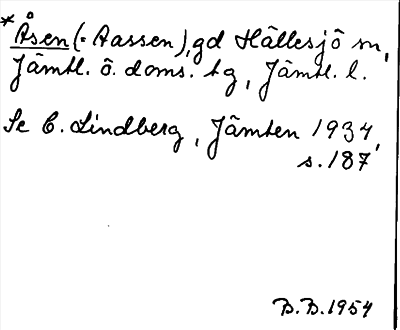 * Åsen (= Aassen), gd Hällesjö sn,
Jämtl. ö. doms. tg, Jämtl. l.
Se C. Lindberg, Jämten 1934,
s. 187
B.B. 1954